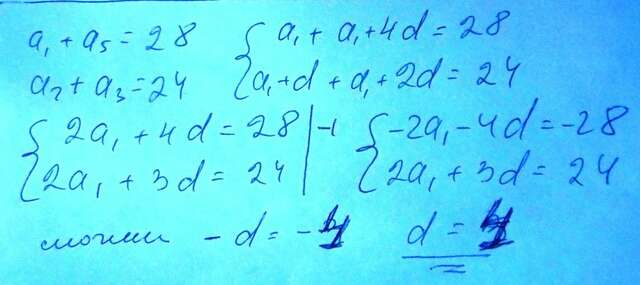 a₁ + a₅ = 28
a₂ + a₃ = 24
{ a₁ + a₁ + 4d = 28
a₁ + d + a₁ + 2d = 24
{ 2a₁ + 4d = 28 | -1
2a₁ + 3d = 24
{ -2a₁ - 4d = -28
2a₁ + 3d = 24
-d = -4 d = 4